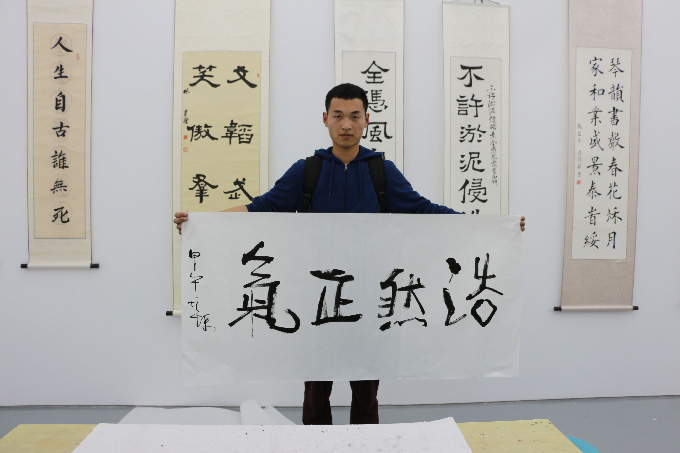 浩然正氣
甲午
琴韻書聲春花秋月
家和業盛景泰
不許淤泥侵
全憑風
文韜武
笑傲羣
人生自古誰無死